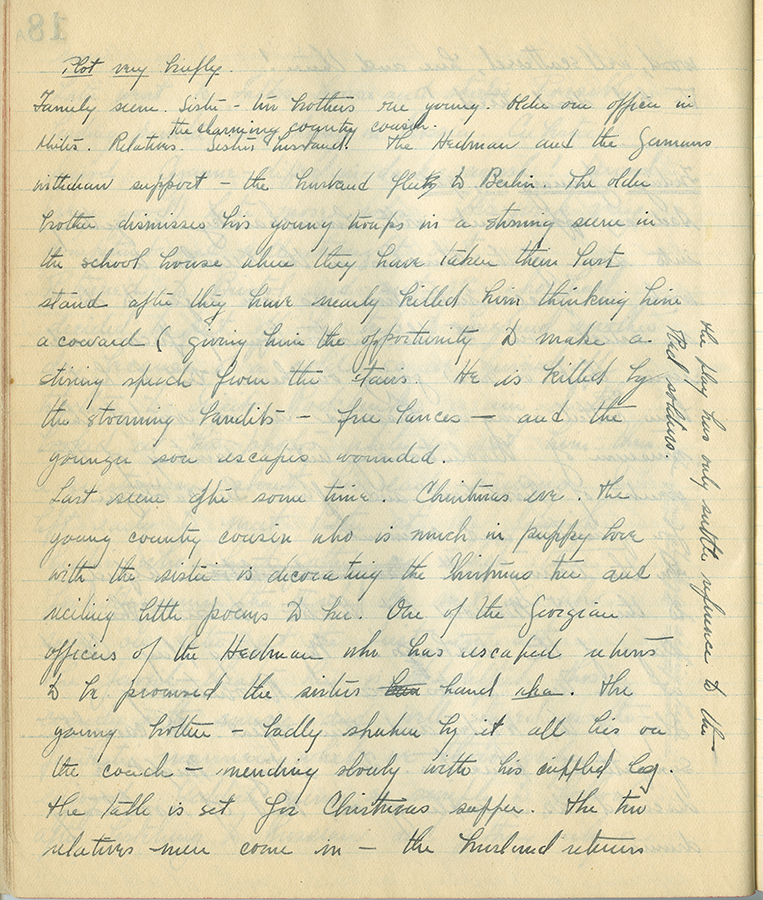 Plot very briefly.
Family scene. Sister - two brothers one young. Older one officer in
the charming country cousin.
White. Relatives. Sister's husband. The Hedman and the Germans
withdraw support - the husband flees to Berlin. The older
brother dismisses his young troops in a stirring scene in
the school house where they have taken their last
stand after they have nearly killed him thinking him
a coward ( giving him the opportunity to make a
stiring speach from the stairs. He is killed by
the storming bandits - free lances - and the
younger son escapes wounded.
Last scene after some time. Christmas eve. The
young country cousin who is much in puppy love
with the sister is decorating the Christmas tree and
reciting little poems to her. One of the Georgian
officers of the Hedman who has escaped returns
to be promised the sisters hand etc. The
young brother - badly shaken by it all lies on
the couch - mending slowly with his crippled leg.
The table is set for Christmas supper. The two
relatives - men come in - the husband returns
The play has only subtle reference to the
Red soldiers.